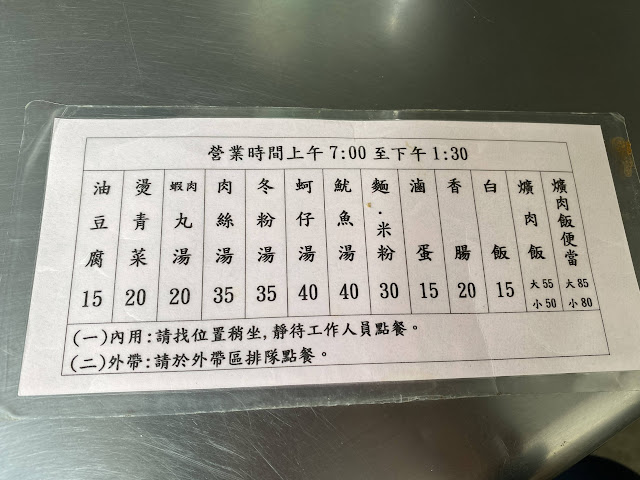 營業時間上午 7:00 至下午 1:30
油豆腐 15
燙青菜 20
蝦肉丸湯 20
肉絲湯 35
冬粉湯 35
蚵仔湯 40
魷魚湯 40
麵.米粉 30
滷蛋 15
香腸 20
白飯 15
爌肉飯 大 55 小 50
爌肉飯便當 大 85 小 80
(一)內用:請找位置稍坐,靜待工作人員點餐。
(二)外帶:請於外帶區排隊點餐。